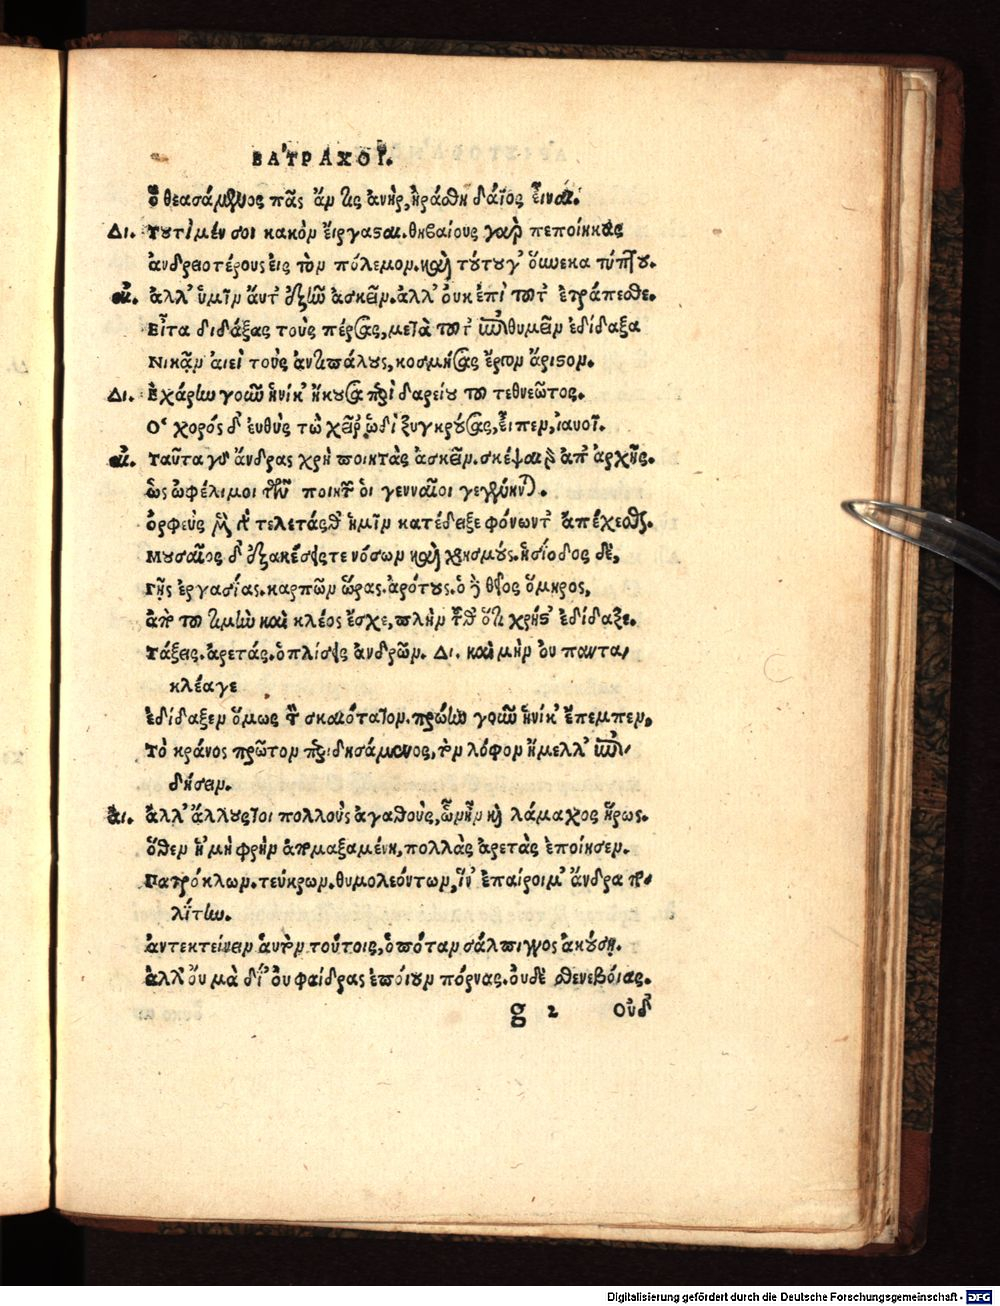 ΒΑ'ΤΡΑΧΟΙ.
ὁ θεασάμενος πᾶς ἄν τις ἀνὴρ, ἠράσθη δάϊος εἶναι.
Δι. Τουτὶ μέν σοι κακὸν εἴργασαι. θηβαίους γὰρ πεποίηκας
ἀνδρειοτέρους εἰς τὸν πόλεμον. καὶ τούτου γ' οὕνεκα τύπτου.
αἰ. ἀλλ' ὑμῖν αὔτ' ἐξῆν ἀσκεῖν. ἀλλ' οὐκ ἐπὶ τοῦτ' ἐτράπεσθε.
Εἶτα διδάξας τοὺς πέρσας, μετὰ τοῦτ' ἐπιθυμεῖν ἐδίδαξα
Νικᾷν αἰεὶ τοὺς ἀντιπάλους, κοσμήσας ἔργον ἄριστον.
Δι. Ἐχάρην γοῦν ἡνίκ' ἤκουσα περὶ δαρείου τοῦ τεθνεῶτος.
Ο' χορός δ' εὐθὺς τὼ χεῖρ' ὡδὶ ξυγκρούσας, εἶπεν, ἰαυοῖ.
αἰ. Ταῦτα γὰρ ἄνδρας χρὴ ποιητὰς ἀσκεῖν. σκέψαι γὰρ ἀπ' ἀρχῆς.
ὡς ὠφέλιμοι τῶν ποιητῶν οἱ γενναῖοι γεγένηνται.
ὀρφεὺς μὲν γὰρ τελετάς θ' ἡμῖν κατέδειξε φόνων τ' ἀπέχεσθαι.
Μουσαῖος δ' ἐξακέσεις τε νόσων καὶ χρησμούς. ἡσίοδος δὲ,
Γῆς ἐργασίας. καρπῶν ὥρας. ἀρότους. ὁ δὲ θεῖος ὅμηρος,
ἀπὸ τοῦ τιμὴν καὶ κλέος ἔσχε, πλὴν τοῦδ' ὅτι χρήστ' ἐδίδαξε.
Τάξεις. ἀρετάς. ὁπλίσεις ἀνδρῶν. Δι. καὶ μὴν οὐ παντα/
κλέα γε
ἐδίδαξεν ὅμως τὸν σκαιότατον. πρώην γοῦν ἡνίκ' ἔπεμπεν,
Τὸ κράνος πρῶτον περιδησάμενος, τὸν λόφον ἤμελλ' ἐπι/
δήσειν.
αἰ. ἀλλ' ἄλλους τοι πολλοὺς ἀγαθοὺς, ὧν ἦν καὶ λάμαχος ἥρως.
ὅθεν ἡ 'μὴ φρὴν ἀπομαξαμένη, πολλὰς ἀρετὰς ἐποίησεν.
Πατρόκλων. τεύκρων. θυμολεόντων, ἵν' ἐπαίροιμ' ἄνδρα πο/
λίτην.
ἀντεκτείνειν αὑτὸν τούτοις, ὁπόταν σάλπιγγος ἀκούσῃ.
ἀλλ' οὐ μὰ δί' οὐ φαίδρας ἐποίουν πόρνας. οὐδὲ σθενεβοίας.
g 2 Οὐδ'